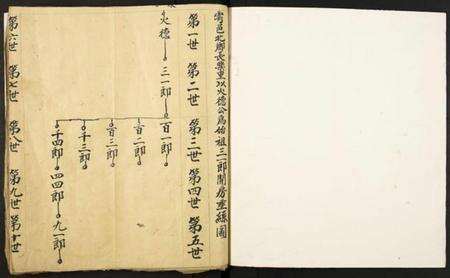 寧邑北鄉長樂里以火德公為始祖三一郎開房垂絲圖
第一世 第二世 第三世 第四世 第五世
火德 三一郎
百一郎
百二郎
百三郎
千三郎
千四郎 四四郎 九一郎
第六世 第七世 第八世 第九世 第十世